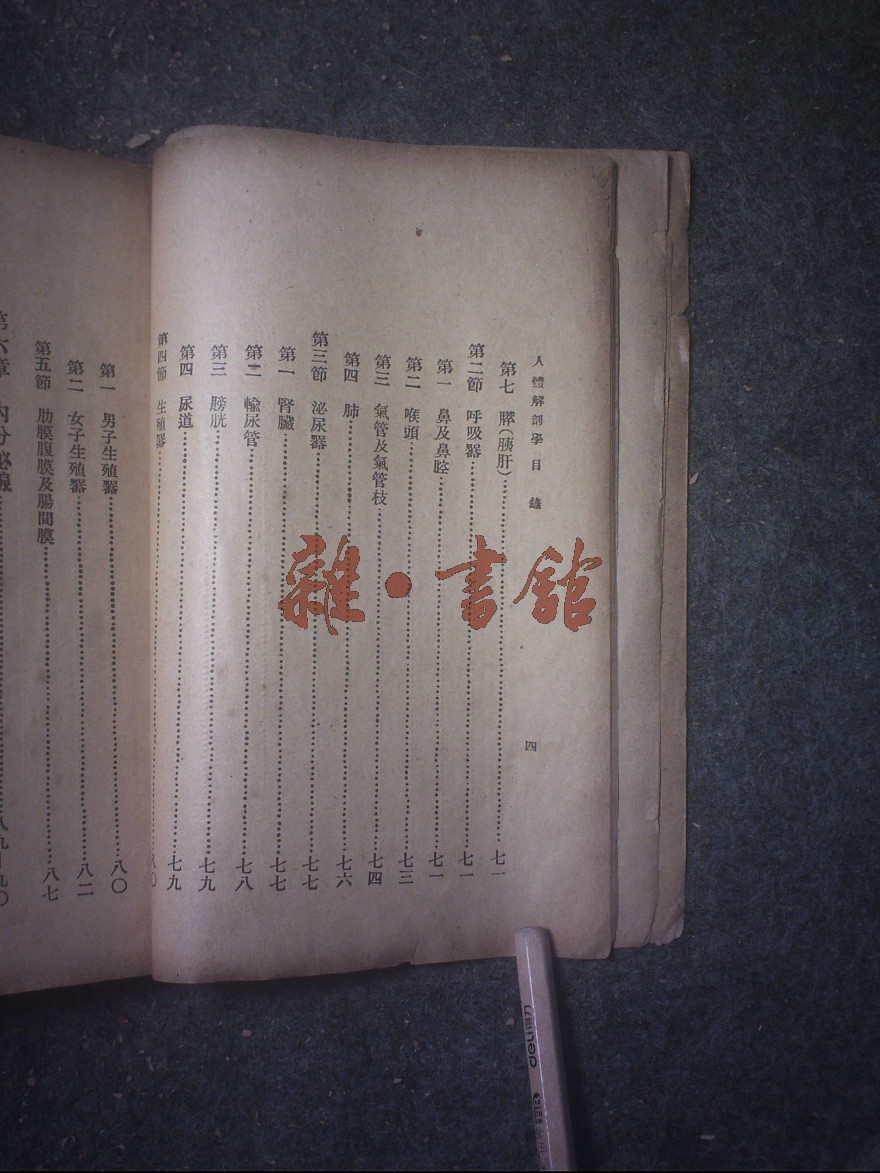 人體解剖學 目錄 四
第七 膵(胰肝)……七一
第二節 呼吸器……七一
第一 鼻及鼻腔……七一
第二 喉頭……七三
第三 氣管及氣管枝……七四
第四 肺……七六
第三節 泌尿器……七七
第一 腎臟……七七
第二 輸尿管……七八
第三 膀胱……七九
第四 尿道……七九
第四節 生殖器……八〇
第一 男子生殖器……八〇
第二 女子生殖器……八二
第五節 肋膜腹膜及腸間膜……八七
第六章 內分泌腺……八九—九〇
雜·書館
deli